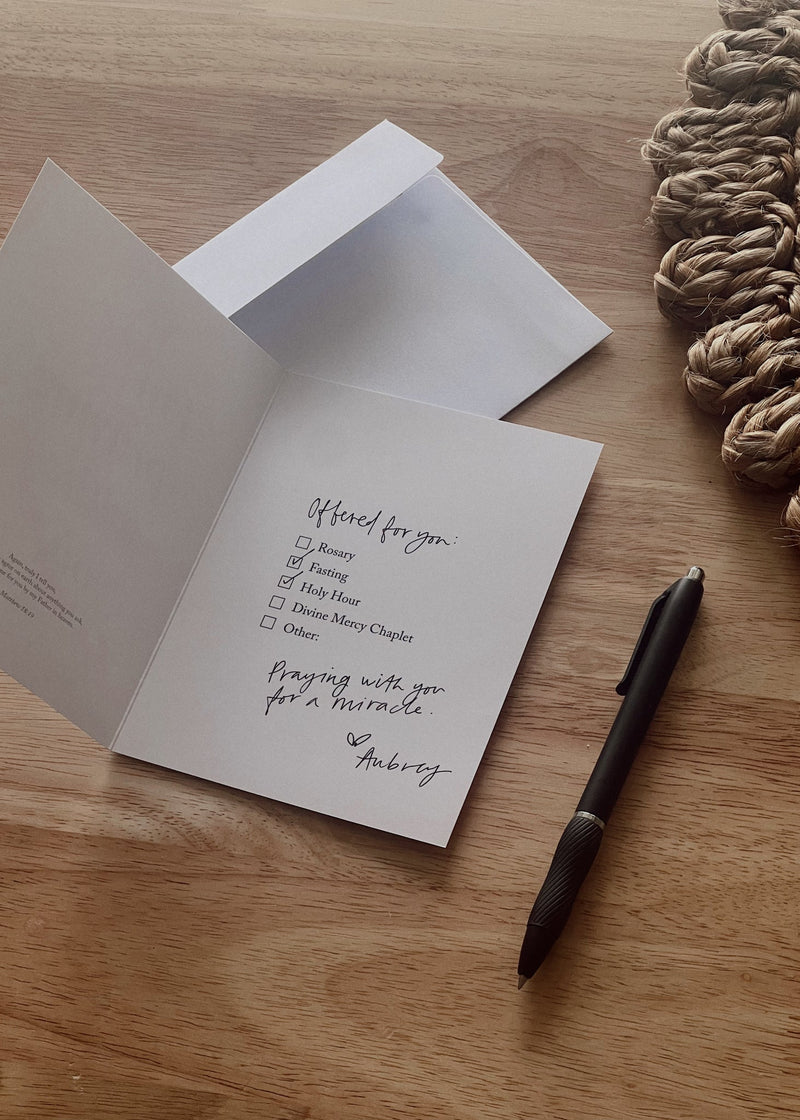 Again, truly I tell you,
agree on earth about anything you ask,
for you by my Father in heaven.
Matthew 18:19
Offered for you:
☐ Rosary
☑ Fasting
☑ Holy Hour
☐ Divine Mercy Chaplet
☐ Other:
Praying with you
for a miracle.
Aubrey